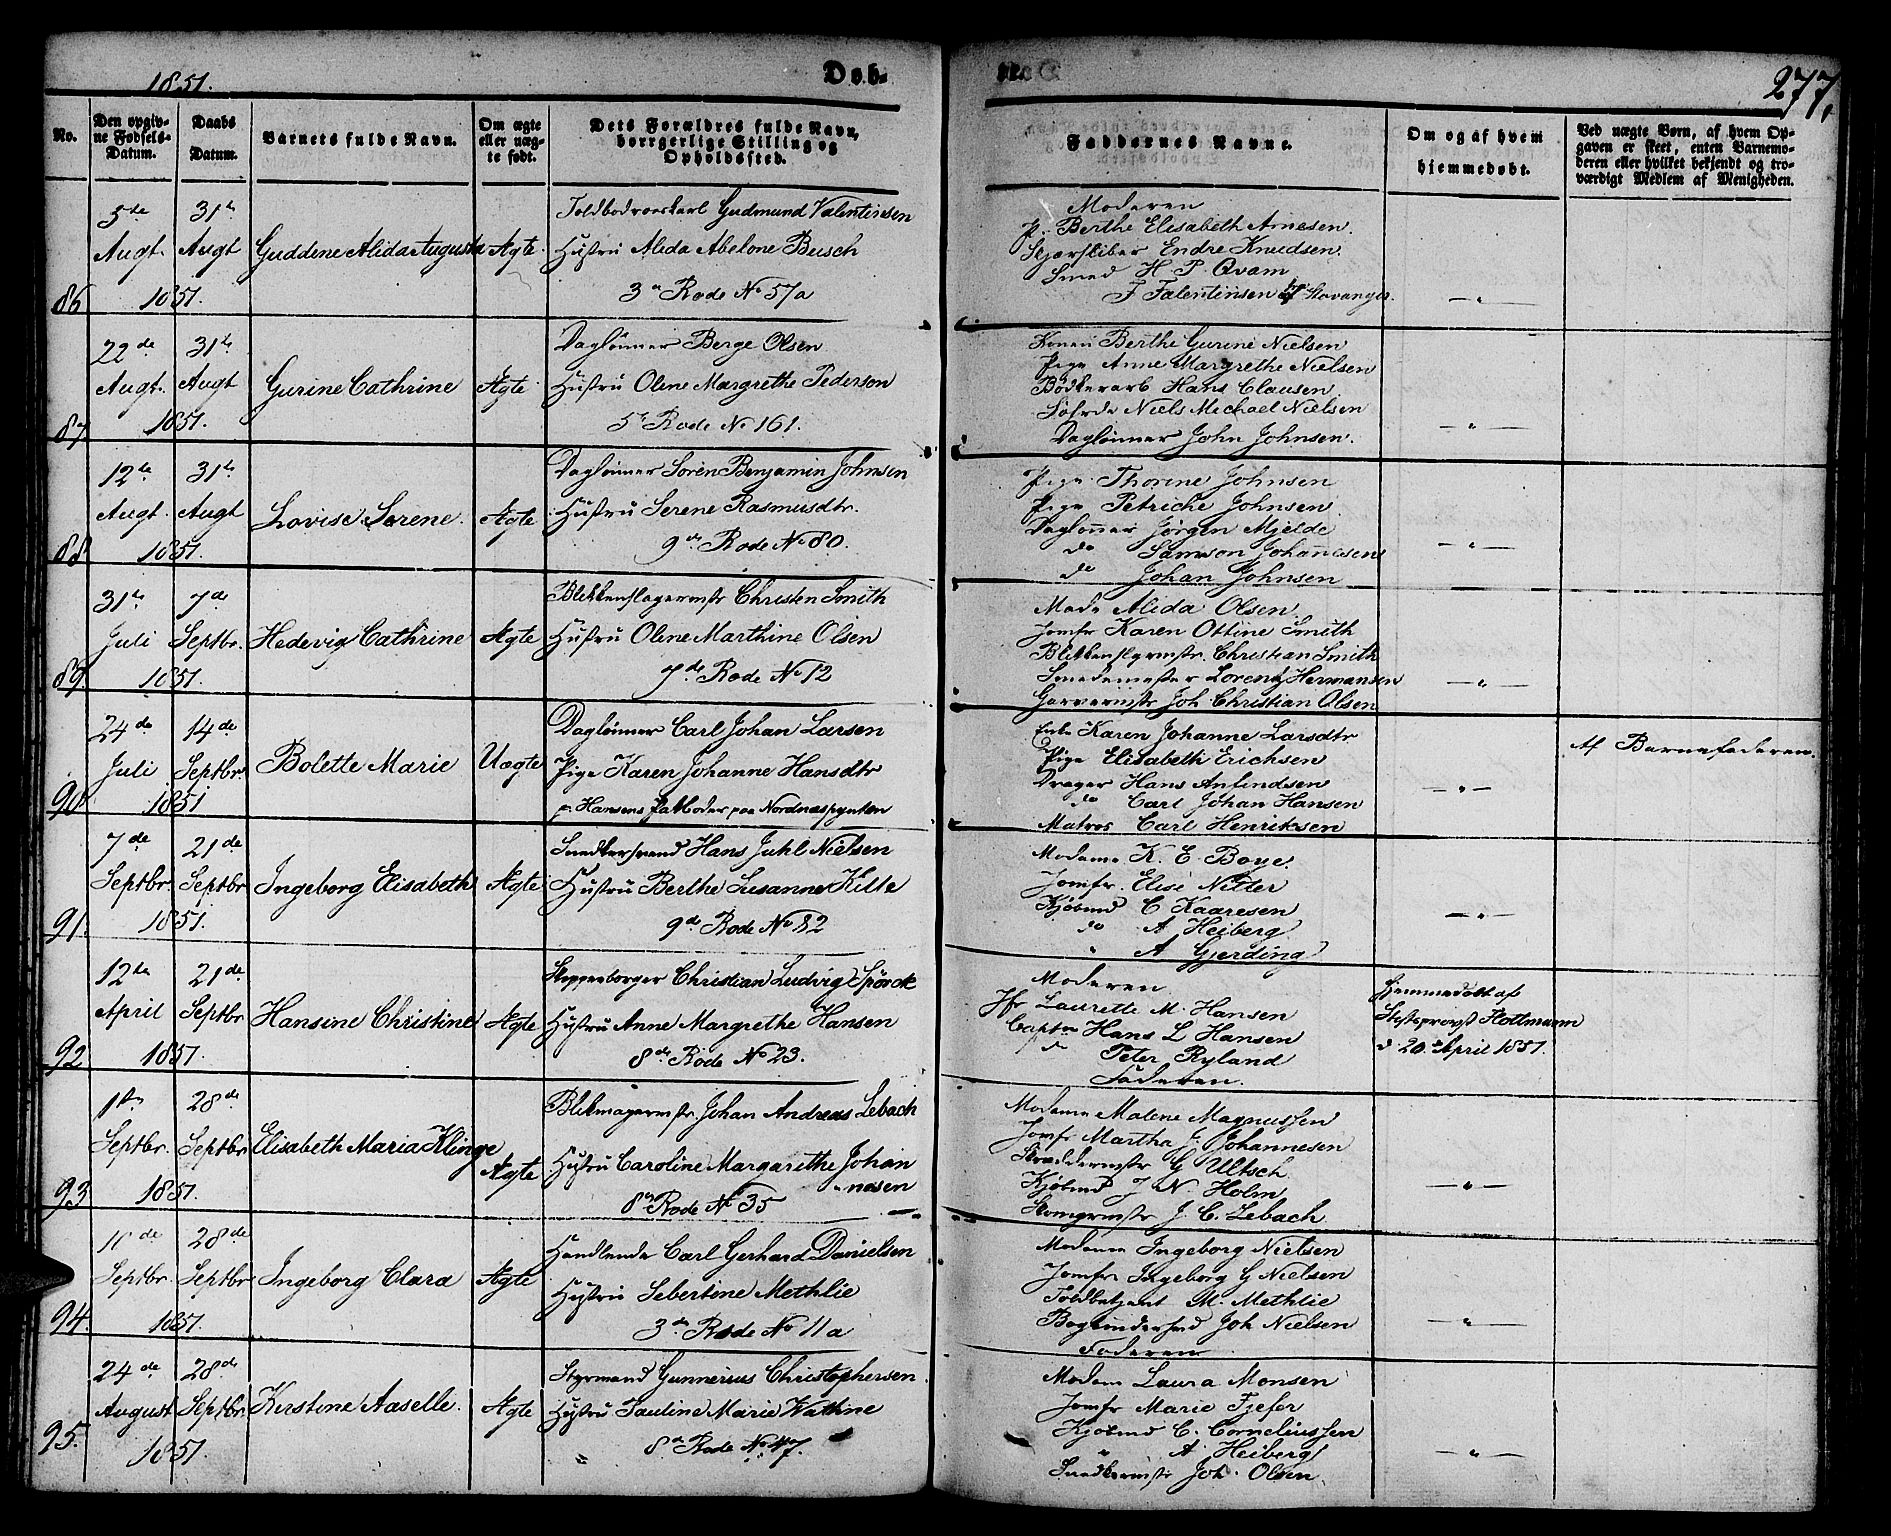 1851.
Døb-
277.
No.
Den opgiv-
ne Fødsels-
Datum.
Daabs
Datum.
Barnets fulde Navn.
Om ægte
eller uæg-
te født.
Dets Forældres fulde Navn,
borgerlige Stilling og
Opholdssted.
Faddernes Navne.
Om og af hvem
hjemmedøbt.
Ved uægte Børn, af hvem Op-
gaven er skeet, enten Barnemo-
deren eller hvilket bekjendt og tro-
værdigt Medlem af Menigheden.
86
5te Augt. 1851.
31te Augt
Guddene Alida Augusta
Ægte
Toldbodroerkarl Gudmund Valentinsen
Hustru Alida Abelone Busch
3de Rode No 57a
Moderen
P. Berthe Elisabeth Arnesen.
Skjærsliber Endre Knudsen.
Smed H. P. Qvam
F Falentinsen af Stavanger.
— " —
87
22de Augt. 1851.
31te Augt
Gurine Cathrine
Ægte
Daglønner Berge Olsen
Hustru Olene Margrethe Pederson
5te Rode No 161.
Konen Berthe Gurine Nielsen
Pige Anne Margrethe Nielsen
Bødkerarb Hans Clausen
Søfrde Niels Michael Nielsen
Daglønner John Johnsen.
— " —
88
12te Augt. 1851.
31te Augt
Lovise Serene.
Ægte
Daglønner Søren Benjamin Johnsen
Hustru Serene Rasmusdtr.
9de Rode No 80.
Pige Thorine Johnsen
Pige Petricke Johnsen
Dagløner Jørgen Mjelde
do Samson Johannesens
do Johan Johnsen
— " —
89
31te Juli 1851.
7de Septbr.
Hedevig Cathrine
Ægte
Blikkenslagermstr Christen Smith
Hustru Olene Marthine Olsen
7de Rode No 12
Mada Alida Olsen
Jomfr Karen Ottine Smith
Blikkenslgrmstr. Christian Smith
Smedemester Lorentz Hermansen
Garvermstr Joh Christian Olsen
— " —
90
24de Juli 1851
14de Septbr
Bolette Marie
Uægte
Daglønner Carl Johan Larsen
Pige Karen Johanne Hansdtr
p. Hansens Pakboder paa Nordnæspynten
Enke Karen Johanne Larsdtr
Pige Elisabeth Erichsen
Drager Hans Anfindsen
do Carl Johan Hansen
Matros Carl Henriksen
— " —
Af Barnefaderen.
91.
7de Septbr. 1851.
21de Septbr
Ingeborg Elisabeth
Ægte
Snedkersvend Hans Juhl Nielsen
Hustru Berthe Susanne Kille
9de Rode No 82
Madame K. E. Boye.
Jomfr. Elise Nitter
Kjøbmd C Kaaresen
do A Heiberg
" A Gjerding
— " —
92
12te April 1851.
21de Septbr
Hansine Christine
Ægte
Skipperborger Christian Ludvig Spørck
Hustru Anne Margrethe Hansen
8de Rode No 23.
Moderen
Jfr Laurette M. Hansen
Captn Hans L Hansen
d Peter Ryland
Faderen.
Hjemmedøbt af
Stiftsprovst Kottmann
d 20. April 1851.
93
1ste Septbr. 1851.
28de Septbr
Elisabeth Maria Klinge
Ægte
Blikmagermstr. Johan Andreas Lebach
Hustru Caroline Margarethe Johan
-nesen
8de Rode No 35
Madame Malene Magnussen
Jomfr Martha J. Johannesen
Skræddermstr G Ultsch
Kjøbmd J N. Holm
Skomgrmstr J. C. Lebach
— " —
94.
11de Septbr. 1851.
28de Septbr
Ingeborg Clara
Ægte
Handlende Carl Gerhard Danielsen
Hustru Sebertine Methlie
3de Rode No 11a
Madame Ingeborg Nielsen
Jomfr Ingeborg G Nielsen
Toldbetjent M. Methlie
Bogbindersvd Joh Nielsen
Faderen
— " —
95.
24de August 1851.
28de Septbr
Kirstine Aaselle.
Ægte
Styrmand Gunnerius Christophersen
Hustru Pauline Marie Wathne
8de Rode No 47.
Madam Laura Monsen
Jomfr Marie
Kjøbmd C. Corneliussen
" A Heiberg
Snedkermstr Joh. Olsen
— " —